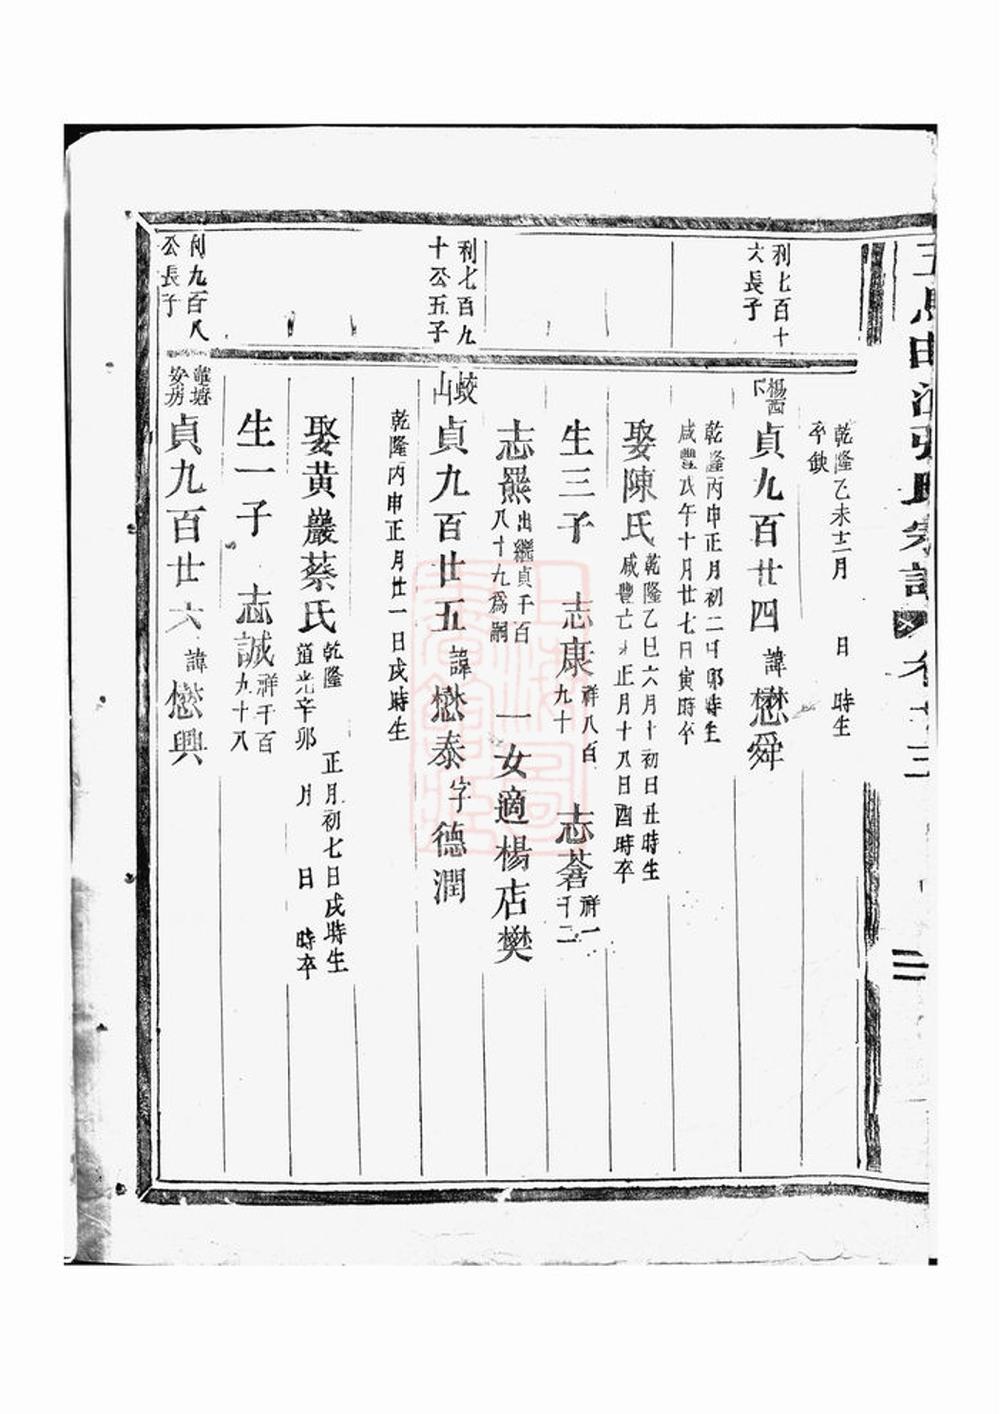 乾隆乙未十二月　日　時生
卒缺
利七百十
六長子
楊西
下
貞九百廿四　諱懋舜
乾隆丙申正月初二日卯時生
咸豐戊午十月廿七日寅時卒
娶陳氏
乾隆乙巳六月十初日丑時生
咸豐丁未正月十八日酉時卒
生三子　志康
祥八百
九十
志蒼
祥一
千二
志羆
出繼貞千百
八十九爲嗣
一女適楊店樊
利七百九
十公五子
蛟
山
貞九百廿五　諱懋泰字德潤
乾隆丙申正月廿一日戌時生
娶黄巖蔡氏
乾隆　正月初七日戌時生
道光辛卯　月　日　時卒
生一子　志誠
祥千百
九十八
利九百八
公長子
安房
貞九百廿六　諱懋興